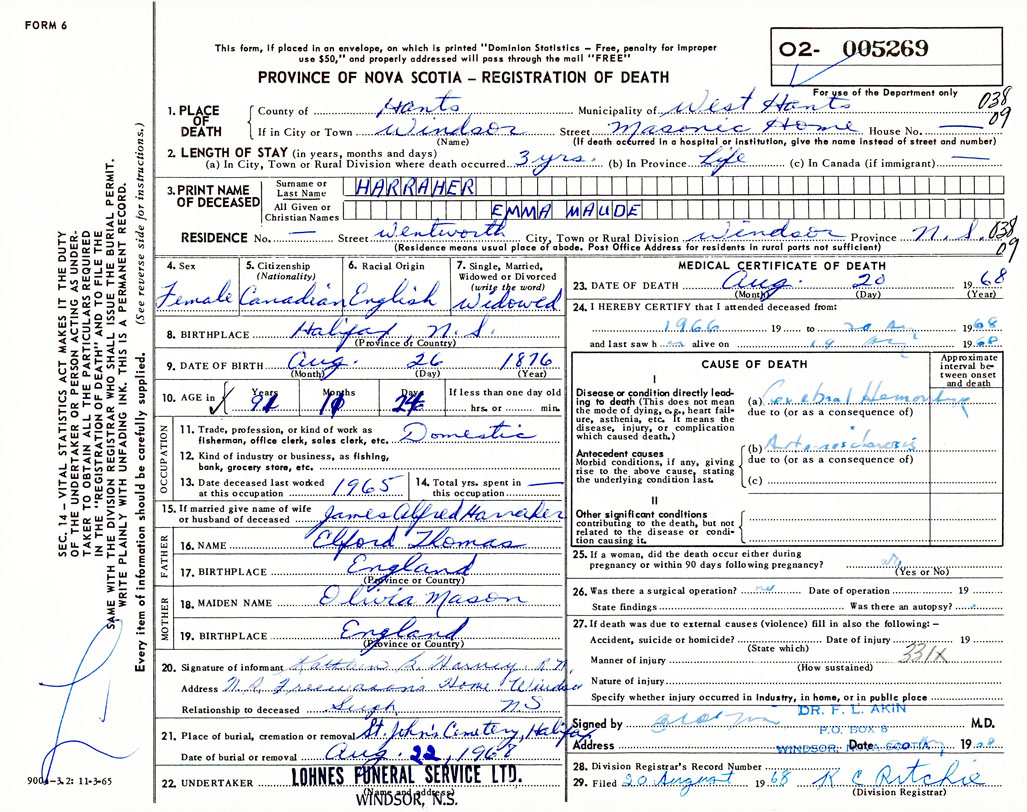 FORM 6
This form, if placed in an envelope, on which is printed "Dominion Statistics – Free, penalty for improper
use $50," and properly addressed will pass through the mail "FREE"
PROVINCE OF NOVA SCOTIA – REGISTRATION OF DEATH
02- 005269
For use of the Department only
038
09
1. PLACE OF DEATH
County of Hants Municipality of West Hants
If in City or Town Windsor Street Masonic Home House No. —
(Name) (If death occurred in a hospital or institution, give the name instead of street and number)
2. LENGTH OF STAY (in years, months and days)
(a) In City, Town or Rural Division where death occurred 3 yrs. (b) In Province Life (c) In Canada (if immigrant) —
3. PRINT NAME OF DECEASED
Surname or Last Name HARRAHER
All Given or Christian Names EMMA MAUDE
RESIDENCE No. — Street Wentworth City, Town or Rural Division Windsor Province N.S. 038
09
(Residence means usual place of abode. Post Office Address for residents in rural parts not sufficient)
4. Sex
Female
5. Citizenship
(Nationality)
Canadian
6. Racial Origin
English
7. Single, Married,
Widowed or Divorced
(write the word)
Widowed
8. BIRTHPLACE Halifax, N.S.
(Province or Country)
9. DATE OF BIRTH Aug. 26 1876
(Month) (Day) (Year)
10. AGE in Years 91 Months 11 Days 24 If less than one day old
hrs. or min.
OCCUPATION
11. Trade, profession, or kind of work as
fisherman, office clerk, sales clerk, etc. Domestic
12. Kind of industry or business, as fishing,
bank, grocery store, etc.
13. Date deceased last worked
at this occupation 1965
14. Total yrs. spent in
this occupation —
15. If married give name of wife
or husband of deceased James Alfred Harraher
FATHER
16. NAME Elford Thomas
17. BIRTHPLACE England
(Province or Country)
MOTHER
18. MAIDEN NAME Olivia Mason
19. BIRTHPLACE England
(Province or Country)
20. Signature of informant Kathleen B. Harvey R.N.
Address N.S. Freemason's Home Windsor
Relationship to deceased Supt. NS
21. Place of burial, cremation or removal St. John's Cemetery, Halifax
Date of burial or removal Aug. 22, 1968
22. UNDERTAKER LOHNES FUNERAL SERVICE LTD.
(Name and address)
WINDSOR, N.S.
MEDICAL CERTIFICATE OF DEATH
23. DATE OF DEATH Aug. 20 1968
(Month) (Day) (Year)
24. I HEREBY CERTIFY that I attended deceased from:
1966 19 to 20 Aug 1968
and last saw her alive on 19 Aug 1968
CAUSE OF DEATH
Approximate
interval between onset
and death
I
Disease or condition directly leading to death (This does not mean
the mode of dying, e.g., heart failure, asthenia, etc. It means the
disease, injury, or complication
which caused death.)
(a) Cerebral Hemorrhage
due to (or as a consequence of)
Antecedent causes
Morbid conditions, if any, giving
rise to the above cause, stating
the underlying condition last.
(b) Arteriosclerosis
due to (or as a consequence of)
(c)
II
Other significant conditions
contributing to the death, but not
related to the disease or condition causing it.
25. If a woman, did the death occur either during
pregnancy or within 90 days following pregnancy? no
(Yes or No)
26. Was there a surgical operation? no Date of operation 19
State findings Was there an autopsy?
27. If death was due to external causes (violence) fill in also the following: –
Accident, suicide or homicide? Date of injury 19
(State which)
331X
Manner of injury
(How sustained)
Nature of injury
Specify whether injury occurred in industry, in home, or in public place
DR. F. L. AKIN
Signed by M.D.
P.O. BOX 8
Address WINDSOR, NOVA SCOTIA Date 1968
28. Division Registrar's Record Number
29. Filed 20 August 1968 K C Ritchie
(Division Registrar)
SEC. 14 – VITAL STATISTICS ACT MAKES IT THE DUTY
OF THE UNDERTAKER OR PERSON ACTING AS UNDERTAKER TO OBTAIN ALL THE PARTICULARS REQUIRED
IN THE "REGISTRATION OF DEATH" AND TO FILE THE
SAME WITH THE DIVISION REGISTRAR WHO SHALL ISSUE THE BURIAL PERMIT.
WRITE PLAINLY WITH UNFADING INK. THIS IS A PERMANENT RECORD.
Every item of information should be carefully supplied. (See reverse side for instructions.)
9004-3.2: 11-3-65